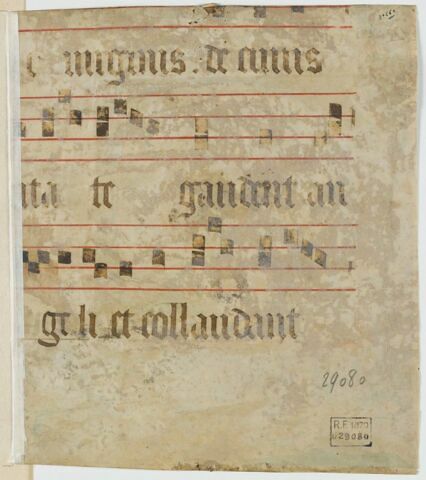 e uirginis. de cuius
ita te gaudent an
geli et collaudant
29080
R.F 1870
029080